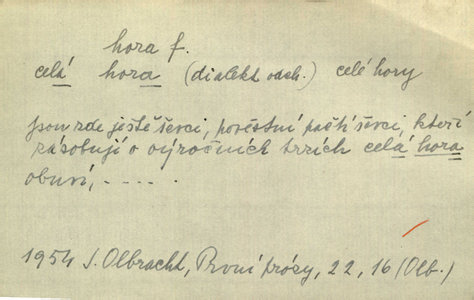 hora f.
celá hora (dialekt. odch.) celé hory
jsou zde ještě ševci, pověstní ševci, kteří
zásobují o výročních trzích celá hora
obuví, - - - -
1954 I. Olbracht, První prózy, 22, 16 (Olb.)